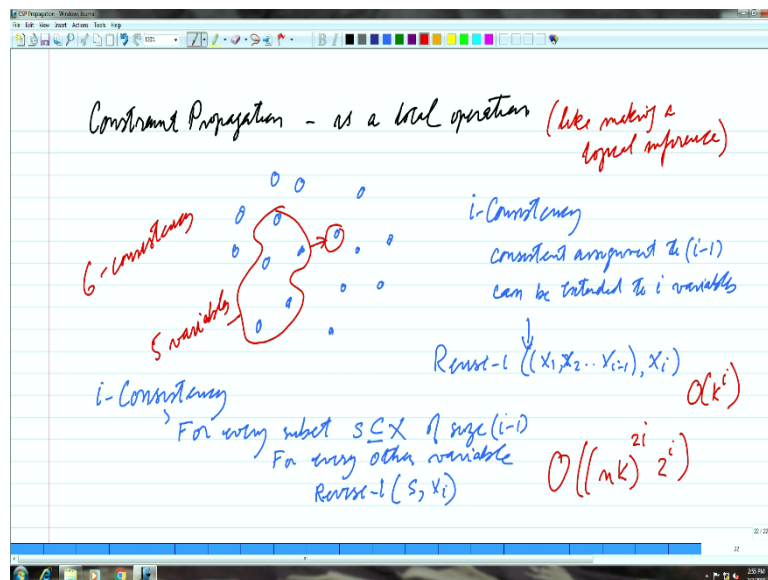 CSP Propagation - Windows Journal
File Edit View Insert Actions Tools Help
Constraint Propagation - as a local operation (like making a
logical inference)
6-consistency
5 variables
i-Consistency
consistent assignment to (i-1)
can be extended to i variables
Revise-i ((x₁,x₂..xᵢ₋₁), xᵢ)
O(kⁱ)
i-Consistency
For every subset S ⊆ X of size (i-1)
For every other variable
Revise-i (S, xᵢ)
O((nk)²ⁱ 2ⁱ)
22/22
22
2:55 PM